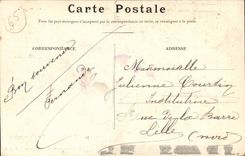 Carte Postale
Tous les pays étrangers n'acceptent pas la correspondance au recto, se renseigner à la poste.
CORRESPONDANCE
ADRESSE
Bon souvenir
Fernande
Mademoiselle
Julienne Courtin
Institutrice
rue de la Barre
Lille
(Nord)